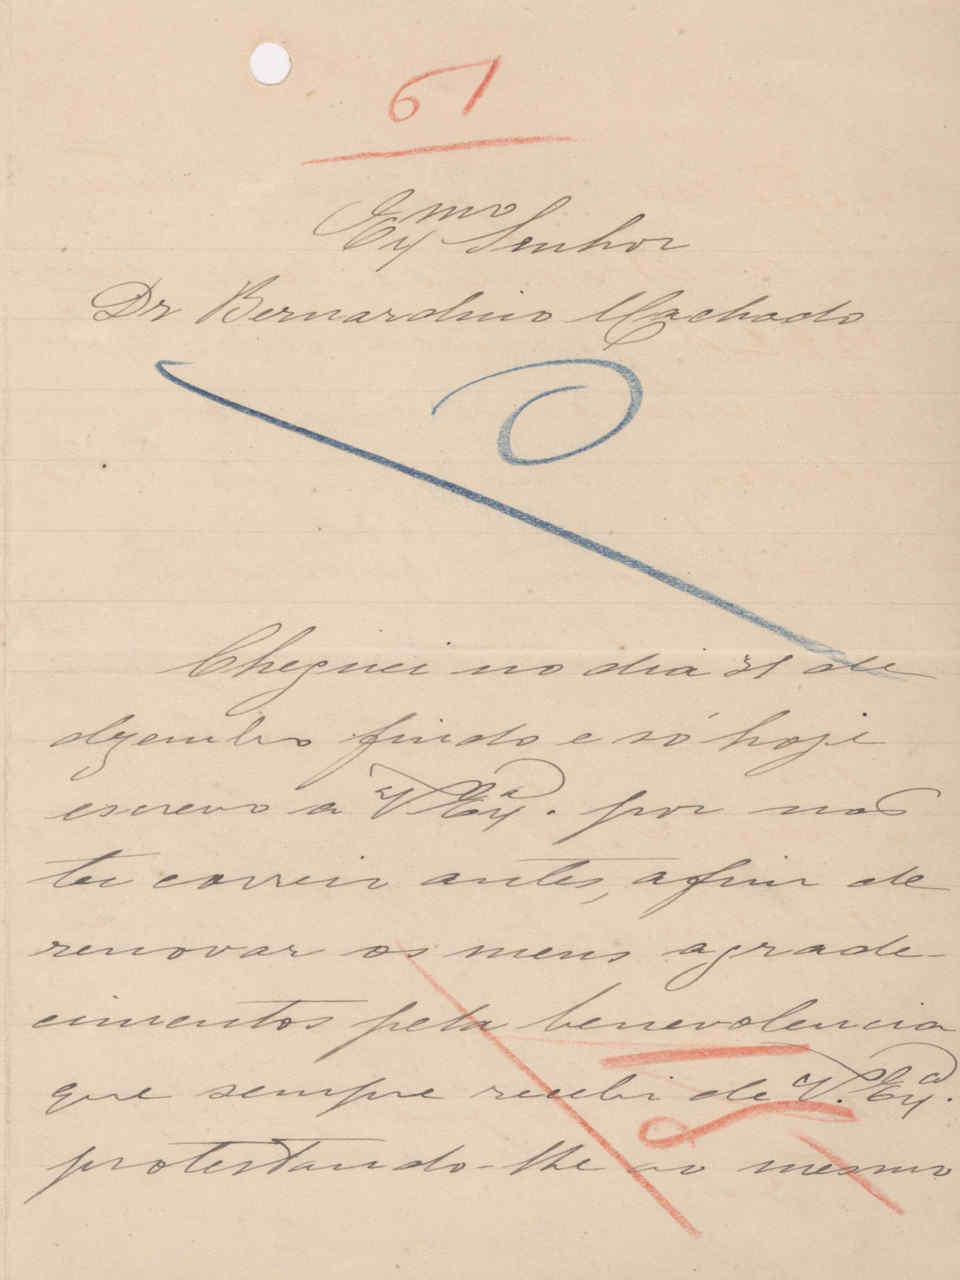 61
Exmo Senhor
Dr Bernardino Machado
Cheguei no dia 31 de
dezembro findo e só hoje
escrevo a V. Exa. por não
ter correio antes, afim de
renovar os meus agrade-
cimentos pela benevolencia
que sempre recebi de V. Exa.
protestando-lhe ao mesmo